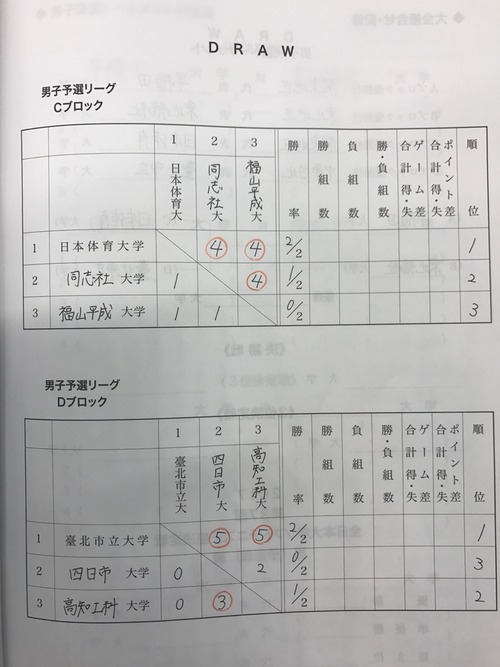 DRAW
男子予選リーグ
Cブロック
1 2 3 勝率 勝組数 負組数 勝・負組数 ゲーム差合計得・失 ポイント差合計得・失 順位
日本体育大 同志社大 福山平成大
1 日本体育大学 4 4 2/2 1
2 同志社 大学 1 4 1/2 2
3 福山平成 大学 1 1 0/2 3
男子予選リーグ
Dブロック
1 2 3 勝率 勝組数 負組数 勝・負組数 ゲーム差合計得・失 ポイント差合計得・失 順位
臺北市立大 四日市大 高知工科大
1 臺北市立大学 5 5 2/2 1
2 四日市 大学 0 2 0/2 3
3 高知工科 大学 0 3 1/2 2